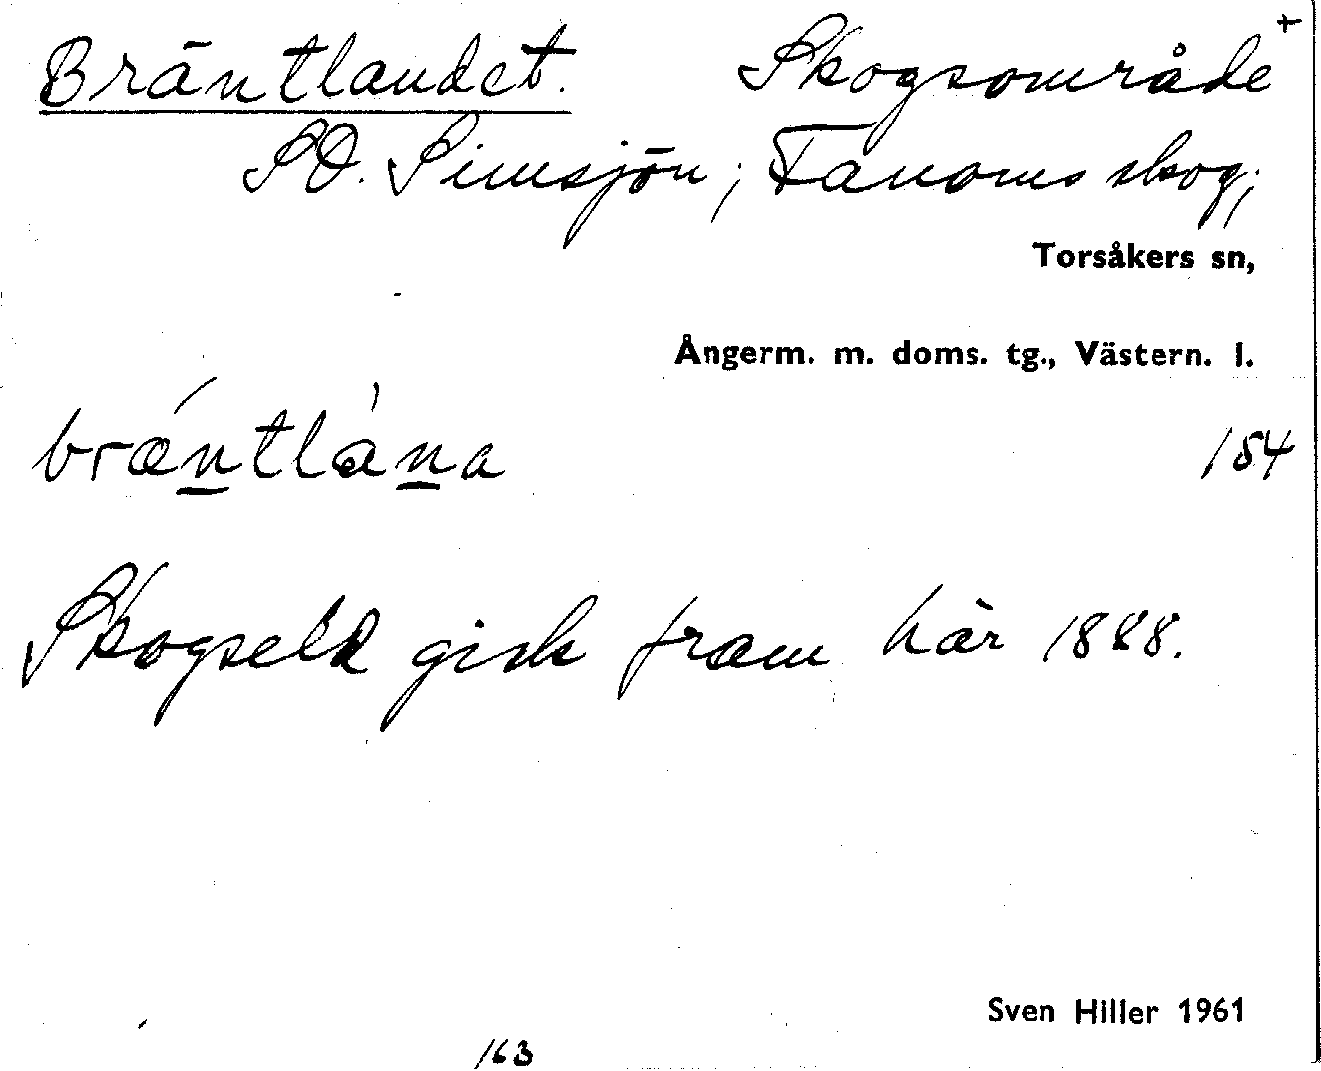 Bräntlandet. Skogsområde +
SO. Simsjön; Fanoms skog;
Torsåkers sn,
Ångerm. m. doms. tg., Västern. l.
brǽntlàna 154
Skogseld gick fram här 1888.
Sven Hiller 1961
163